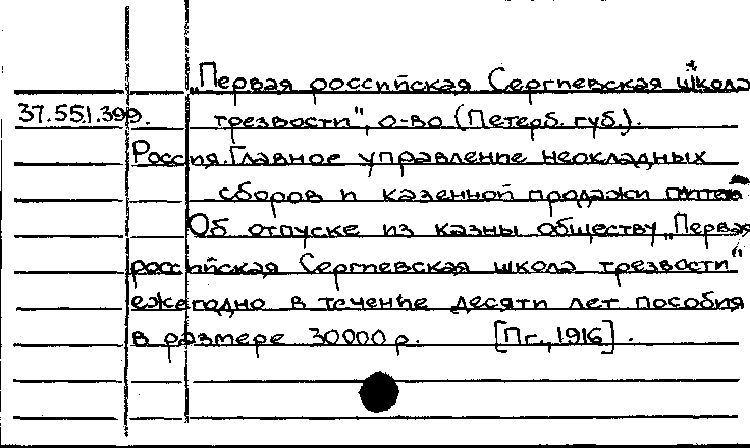 „Первая российская Сергиевская школа
37.551.399. трезвости", о-во (Петерб. губ.).
Россия. Главное управление неокладных
сборов и казенной продажи питей
Об отпуске из казны обществу „Первая
российская Сергиевская школа трезвости"
ежегодно в течение десяти лет пособия
в размере 30000 р. [Пг., 1916].